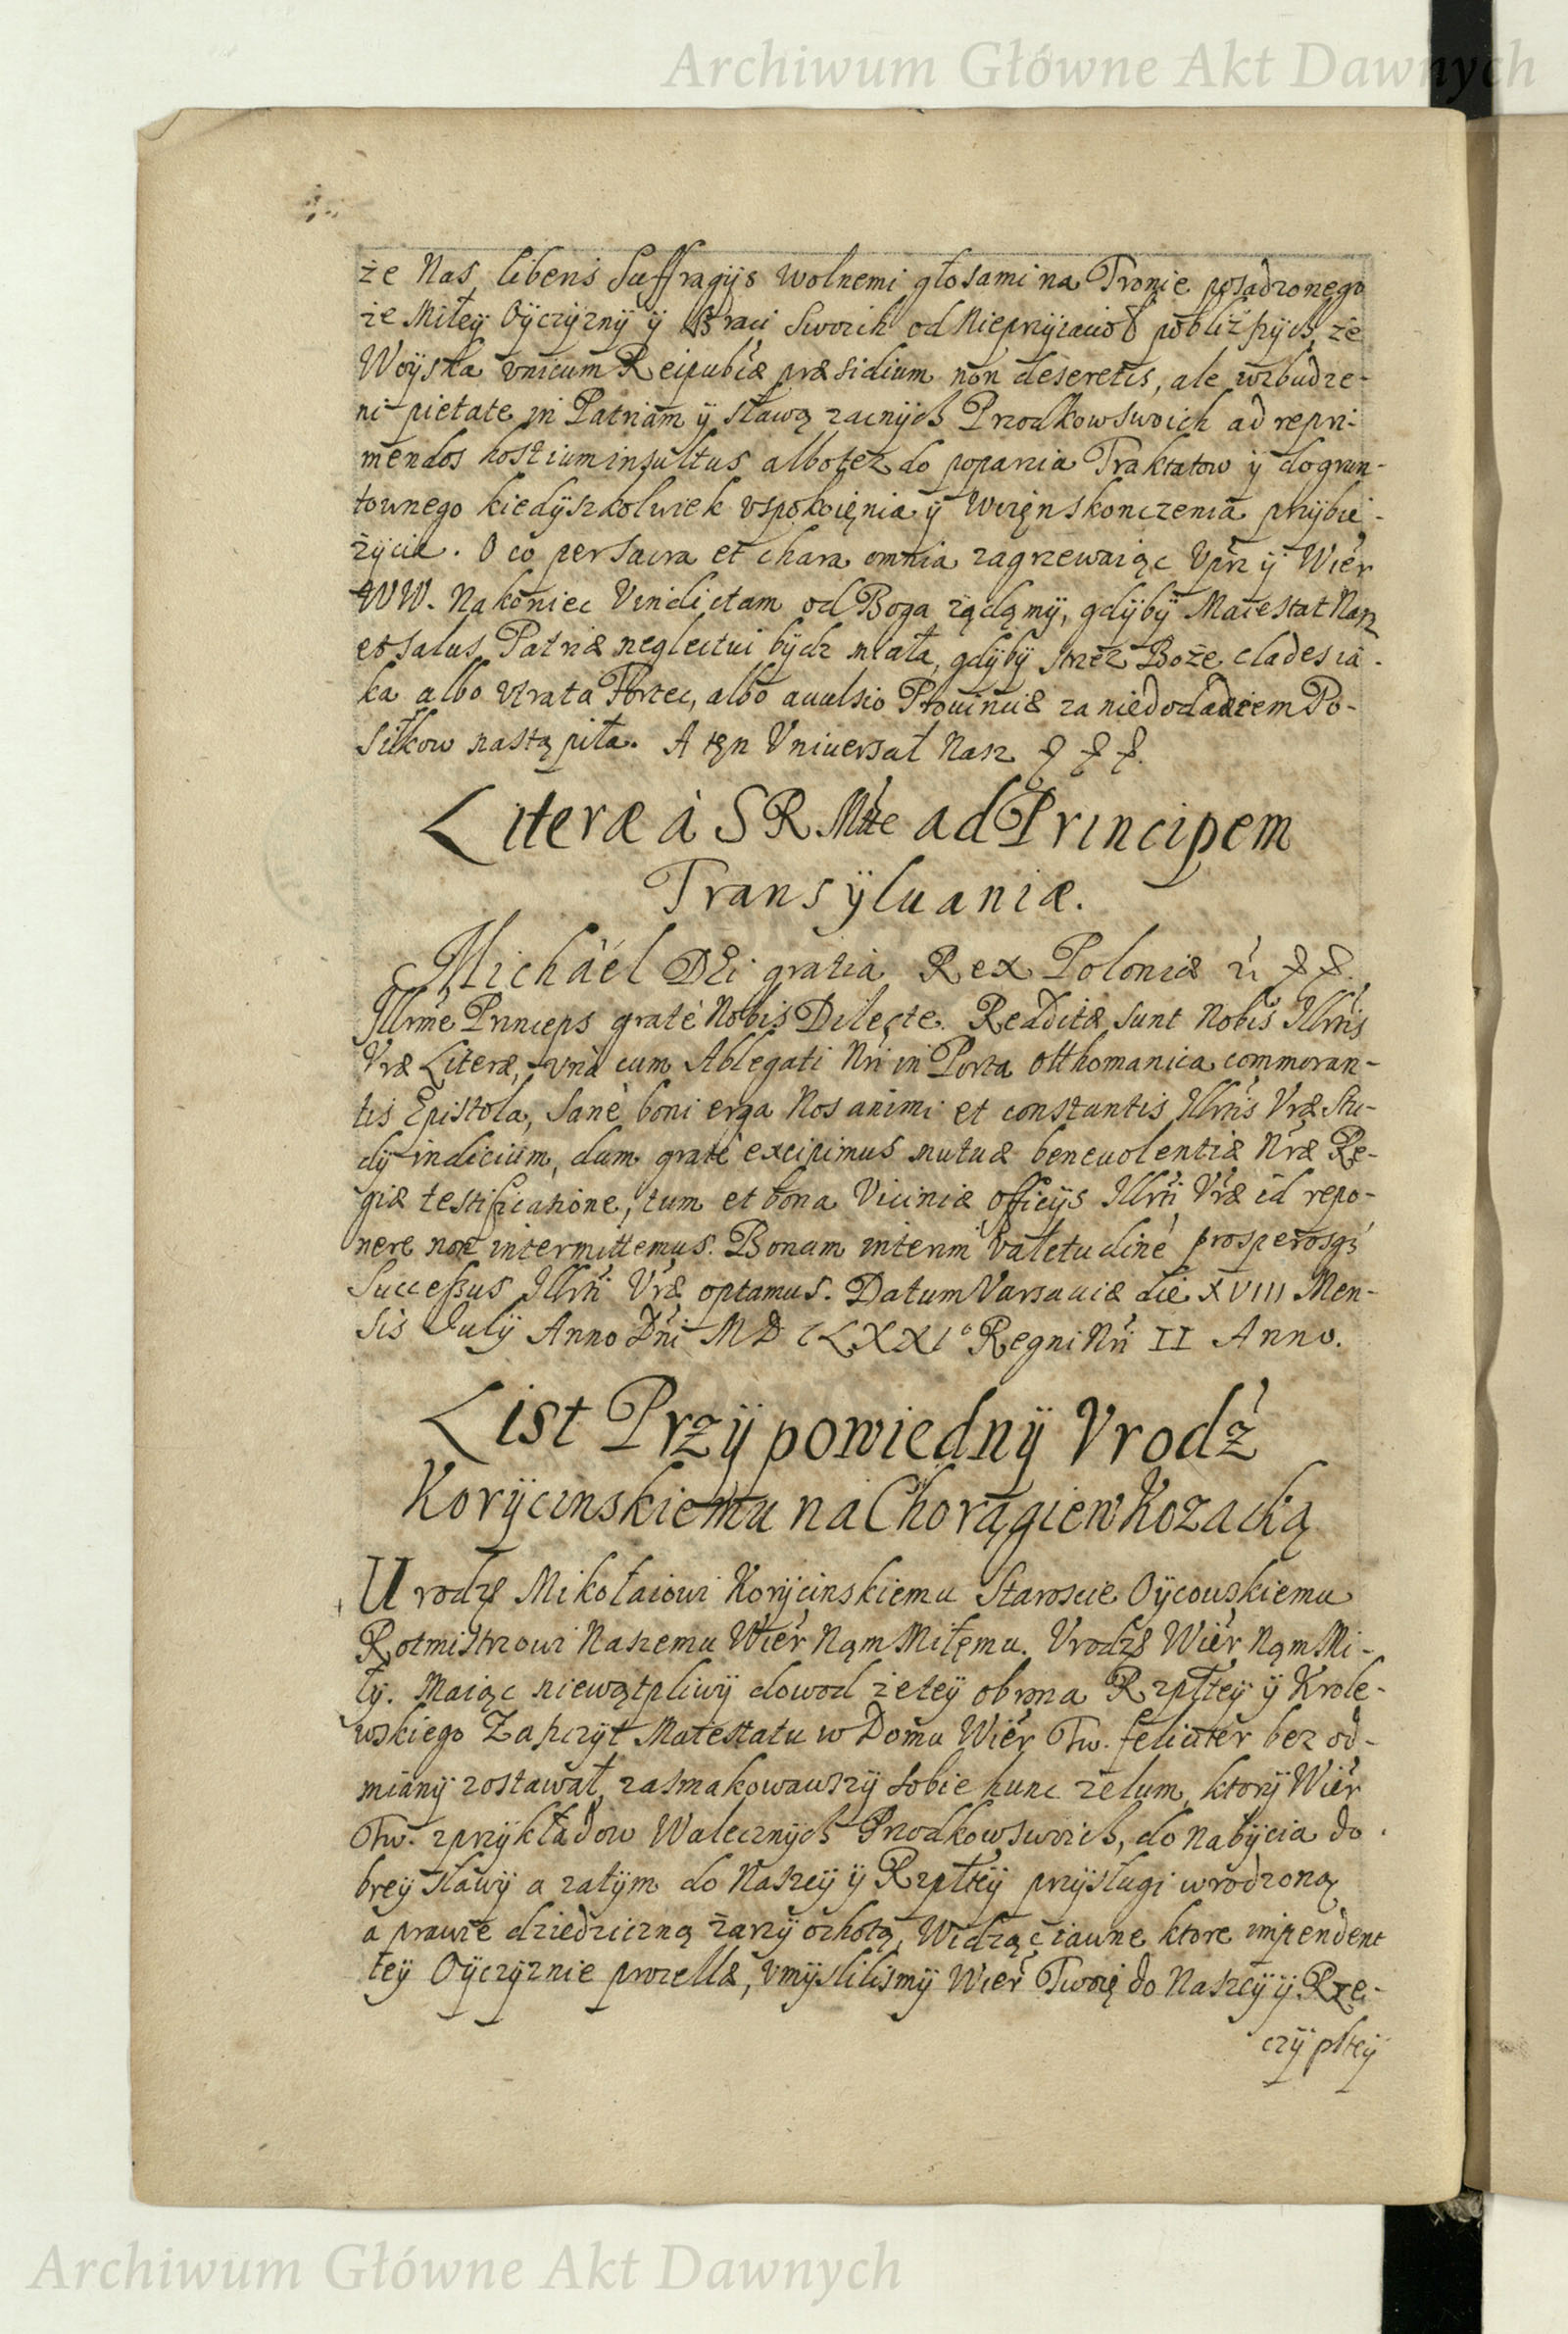 Archiwum Główne Akt Dawnych
że Nas liberis Suffragijs wolnemi głosami na Tronie posadzonego
że Miłeÿ Oÿczÿznÿ ÿ Braci Swoich od Nieprzÿiacioł pobliższÿch, że
Woÿska vnicum Reipublæ præsidium non deseretis, ale wzbudze-
ni pietate in Patriam ÿ sławą zacnÿch Przodkow swoich ad repri-
mendos hostium insultus albo też do poparcia Traktatow ÿ do grun-
townego kiedÿszkolwiek vspokoięnia ÿ Woięn skonczenia przÿbie-
żÿcie. O co per sacra et chara omnia zagrzewaiąc Vprz ÿ Wier
WW. Nakoniec Vindictam od Boga żądamÿ, gdÿbÿ Maiestat Nasz
et salus Patriæ neglectui bÿdz miała, gdÿbÿ strzeż Boże clades ia-
ka albo vtrata Fortec, albo auulsio Prouinciæ za niedodaniem Po-
siłkow nastąpiła. A tęn Vniuersał Nasz
Literæ à S R Mtte ad Principem
Transÿluaniæ.
Michaël Dei gratia Rex Poloniæ
Illrme Princeps gratè Nobis Dilecte. Redditæ sunt Nobis Illrtis
Vræ Literæ, vnà cum Ablegati Nri in Porta otthomanica commoran-
tis Epistola, Sanè boni erga Nos animi et constantis Illrtis Vræ Stu-
dÿ indicium, dum gratè excipimus mutuâ beneuolentiæ Nræ Re-
giæ testificatione, tum et bona Viciniæ officÿs Illrti Vræ id repo-
nere non intermittemus. Bonam interim valetudine prosperosq;
Successus Illrti Vræ optamus. Datum Varsauiæ die XVIII Men-
sis Julÿ Anno Dni MDCLXXIº Regni Nri II Anno.
List Przÿpowiednÿ Vrodz
Korÿcinskiemu na Chorągiew Kozacką
Urodz Mikołaiowi Korÿcinskiemu Staroscie Oÿcowskiemu
Rotmistrzowi Naszemu Wier Nąm Miłęmu. Vrodz Wier Nąm Mi-
łÿ. Maiąc niewątpliwÿ dowod że teÿ obrona Rzpłteÿ ÿ Krole-
wskiego Zaszczÿt Maiestatu w Domu Wier Tw. feliciter bez od-
mianÿ zostawał, zasmakowawszÿ sobie hunc zelum, ktorÿ Wier
Tw. z przÿkładow Walecznÿch Przodkow swoich, do nabÿcia do-
breÿ sławÿ a zatÿm do Naszeÿ ÿ Rzpłteÿ przÿsługi wrodzoną
a prawie dziedziczną żarzÿ ochotą, Widząc iawne ktore impendent
teÿ Oÿczÿznie procellæ, vmÿslilismÿ Wier Twoię do Naszeÿ ÿ Rze-
czÿplteÿ
Archiwum Główne Akt Dawnych